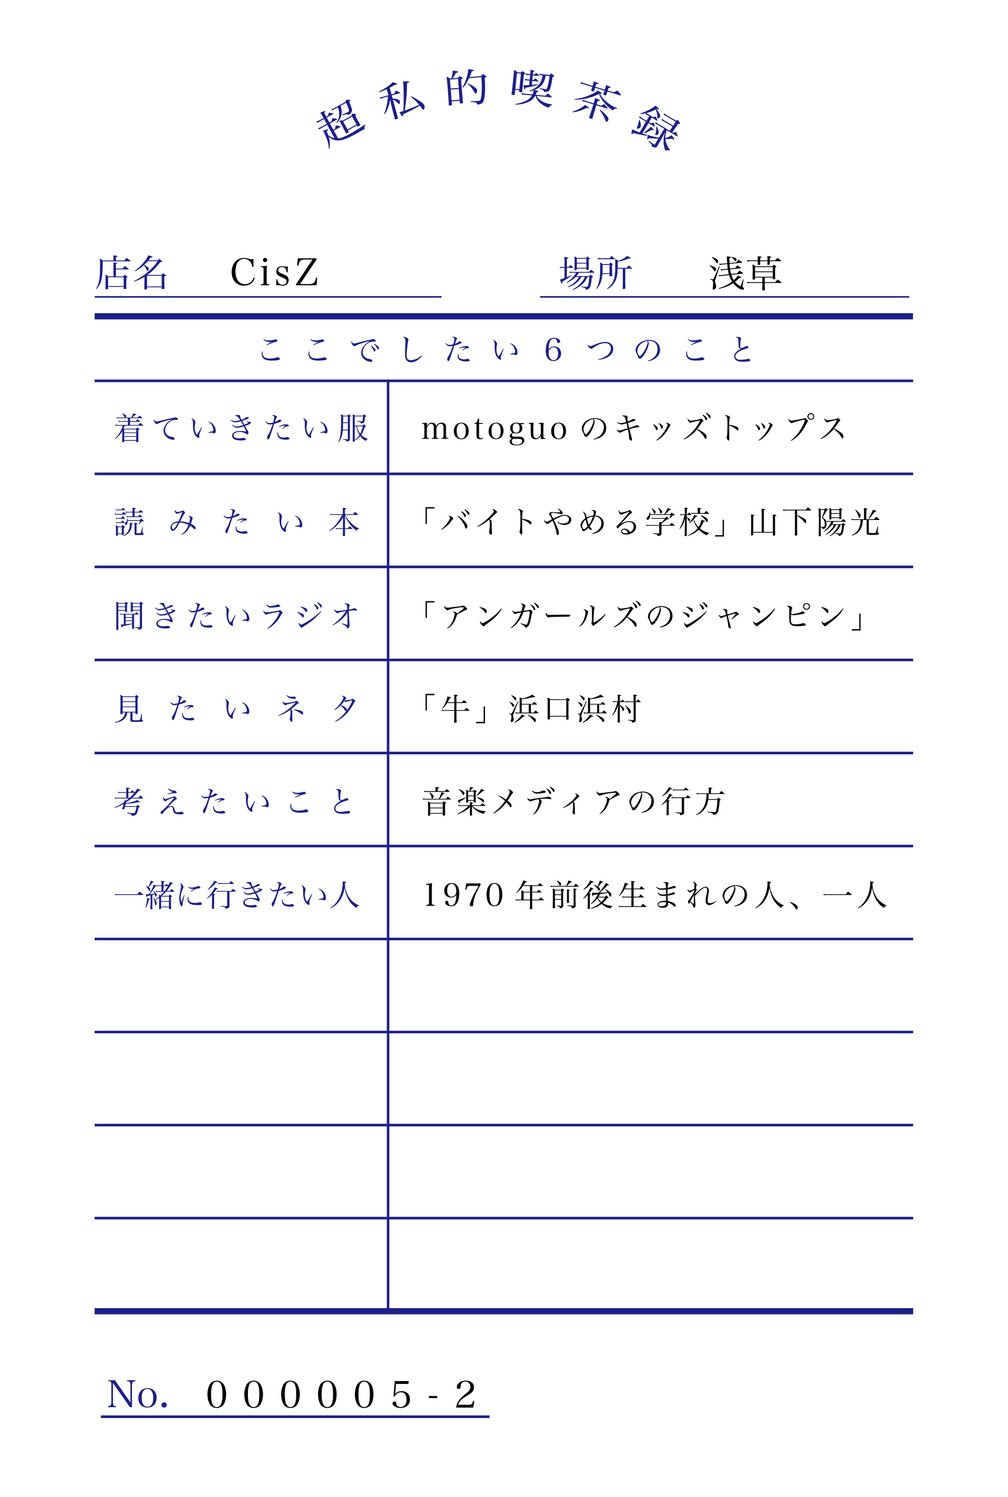 超私的喫茶録
店名 CisZ 場所 浅草
ここでしたい6つのこと
着ていきたい服 motoguoのキッズトップス
読みたい本 「バイトやめる学校」山下陽光
聞きたいラジオ 「アンガールズのジャンピン」
見たいネタ 「牛」浜口浜村
考えたいこと 音楽メディアの行方
一緒に行きたい人 1970年前後生まれの人、一人
No. 000005-2